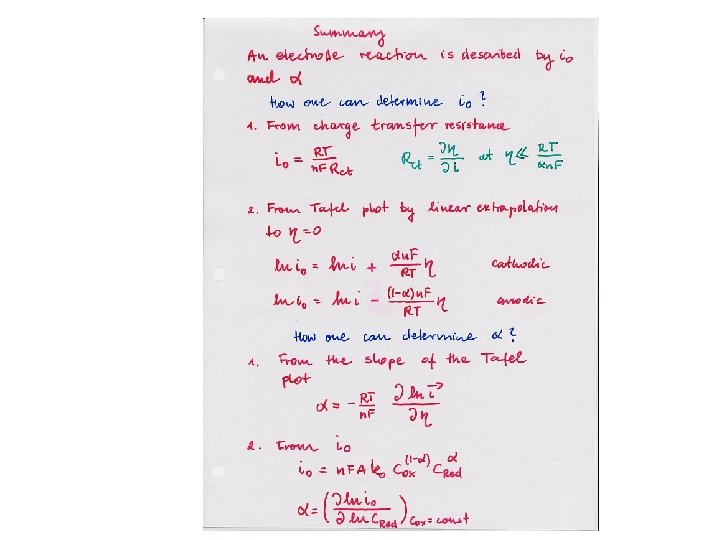 Summary
An electrode reaction is described by i₀
and α
How one can determine i₀?
1. From charge transfer resistance
i₀ = RT / nF Rct    Rct = ∂η / ∂i at η ≪ RT / αnF
2. From Tafel plot by linear extrapolation
to η=0
ln i₀ = ln i + αnF / RT η    cathodic
ln i₀ = ln i - (1-α)nF / RT η    anodic
How one can determine α?
1. From the shope of the Tafel
plot
α = - RT / nF ∂ ln i⃗ / ∂η
2. From i₀
i₀ = nFAk₀ Cox^(1-α) CRed^α
α = (∂ ln i₀ / ∂ ln CRed) Cox = const